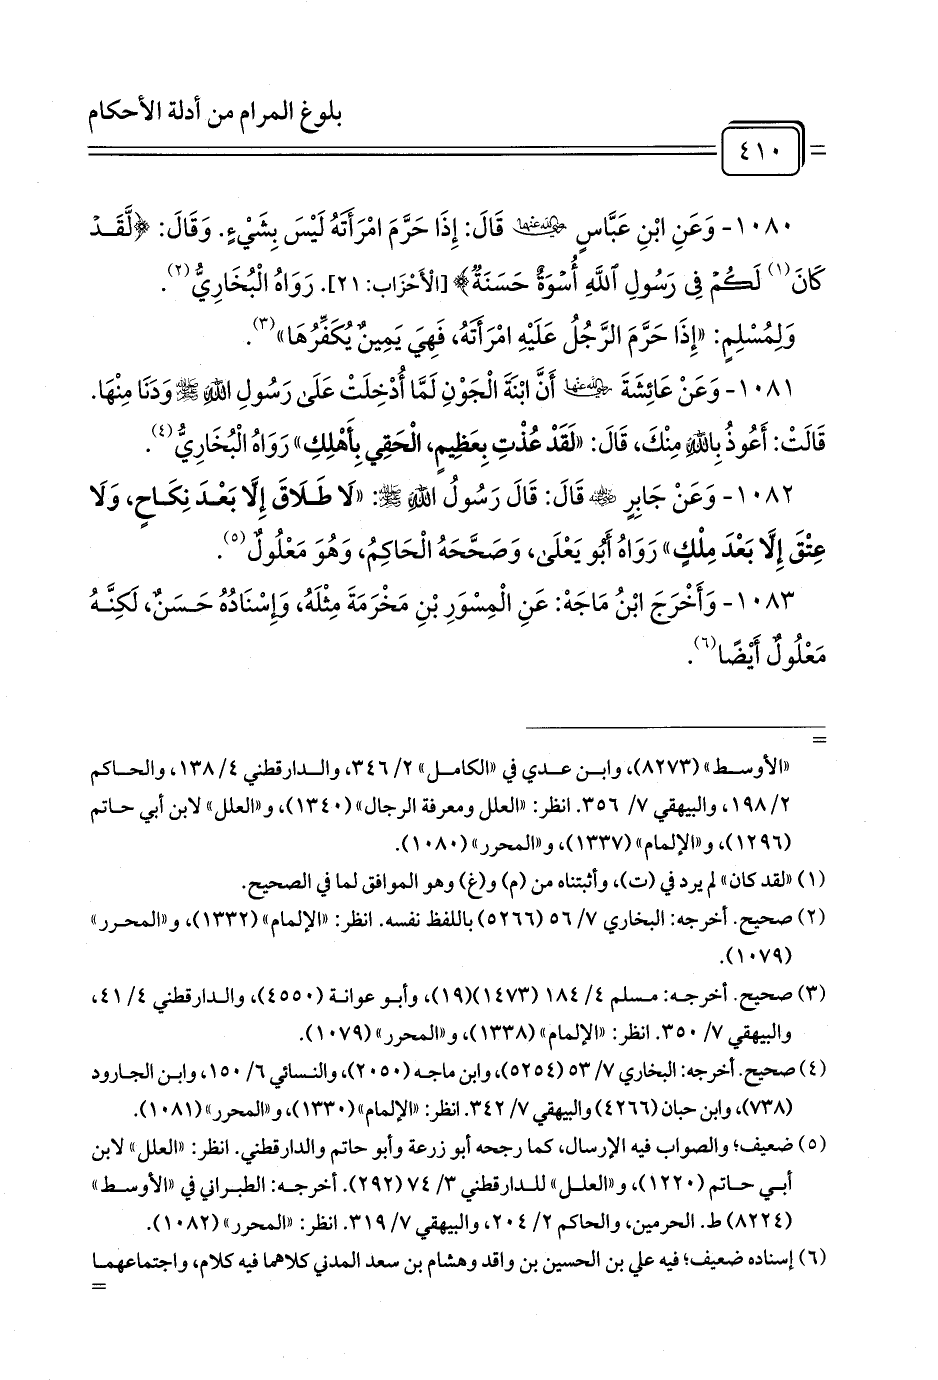 بلوغ المرام من أدلة الأحكام
٤١٠
١٠٨٠- وَعَنِ ابْنِ عَبَّاسٍ رضي الله عنهما قَالَ: إِذَا حَرَّمَ امْرَأَتَهُ لَيْسَ بِشَيْءٍ. وَقَالَ: ﴿لَّقَدْ
كَانَ(١) لَكُمْ فِي رَسُولِ ٱللَّهِ أُسْوَةٌ حَسَنَةٌ﴾ [الْأَحْزَاب: ٢١]. رَوَاهُ الْبُخَارِيُّ(٢).
وَلِمُسْلِمٍ: «إِذَا حَرَّمَ الرَّجُلُ عَلَيْهِ امْرَأَتَهُ، فَهِيَ يَمِينٌ يُكَفِّرُهَا»(٣).
١٠٨١- وَعَنْ عَائِشَةَ رضي الله عنها أَنَّ ابْنَةَ الْجَوْنِ لَمَّا أُدْخِلَتْ عَلَى رَسُولِ اللهِ ﷺ وَدَنَا مِنْهَا.
قَالَتْ: أَعُوذُ بِاللهِ مِنْكَ، قَالَ: «لَقَدْ عُذْتِ بِعَظِيمٍ، الْحَقِي بِأَهْلِكِ» رَوَاهُ الْبُخَارِيُّ(٤).
١٠٨٢- وَعَنْ جَابِرٍ رضي الله عنه قَالَ: قَالَ رَسُولُ اللهِ ﷺ: «لَا طَلَاقَ إِلَّا بَعْدَ نِكَاحٍ، وَلَا
عِتْقَ إِلَّا بَعْدَ مِلْكٍ» رَوَاهُ أَبُو يَعْلَى، وَصَحَّحَهُ الْحَاكِمُ، وَهُوَ مَعْلُولٌ(٥).
١٠٨٣- وَأَخْرَجَ ابْنُ مَاجَهْ: عَنِ الْمِسْوَرِ بْنِ مَخْرَمَةَ مِثْلَهُ، وَإِسْنَادُهُ حَسَنٌ، لَكِنَّهُ
مَعْلُولٌ أَيْضًا(٦).
=
«الأوسط» (٨٢٧٣)، وابن عدي في «الكامل» ٢/ ٣٤٦، والدارقطني ٤/ ١٣٨، والحاكم
٢/ ١٩٨، والبيهقي ٧/ ٣٥٦. انظر: «العلل ومعرفة الرجال» (١٣٤٠)، و«العلل» لابن أبي حاتم
(١٢٩٦)، و«الإلمام» (١٣٣٧)، و«المحرر» (١٠٨٠).
(١) «لقد كان» لم يرد في (ت)، وأثبتناه من (م) و(غ) وهو الموافق لما في الصحيح.
(٢) صحيح. أخرجه: البخاري ٧/ ٥٦ (٥٢٦٦) باللفظ نفسه. انظر: «الإلمام» (١٣٣٢)، و«المحرر»
(١٠٧٩).
(٣) صحيح. أخرجه: مسلم ٤/ ١٨٤ (١٤٧٣)(١٩)، وأبو عوانة (٤٥٥٠)، والدارقطني ٤/ ٤١،
والبيهقي ٧/ ٣٥٠. انظر: «الإلمام» (١٣٣٨)، و«المحرر» (١٠٧٩).
(٤) صحيح. أخرجه: البخاري ٧/ ٥٣ (٥٢٥٤)، وابن ماجه (٢٠٥٠)، والنسائي ٦/ ١٥٠، وابن الجارود
(٧٣٨)، وابن حبان (٤٢٦٦) والبيهقي ٧/ ٣٤٢. انظر: «الإلمام» (١٣٣٠)، و«المحرر» (١٠٨١).
(٥) ضعيف؛ والصواب فيه الإرسال، كما رجحه أبو زرعة وأبو حاتم والدارقطني. انظر: «العلل» لابن
أبي حاتم (١٢٢٠)، و«العلل» للدارقطني ٣/ ٧٤ (٢٩٢). أخرجه: الطبراني في «الأوسط»
(٨٢٢٤) ط. الحرمين، والحاكم ٢/ ٢٠٤، والبيهقي ٧/ ٣١٩. انظر: «المحرر» (١٠٨٢).
(٦) إسناده ضعيف؛ فيه علي بن الحسين بن واقد وهشام بن سعد المدني كلاهما فيه كلام، واجتماعهما
=